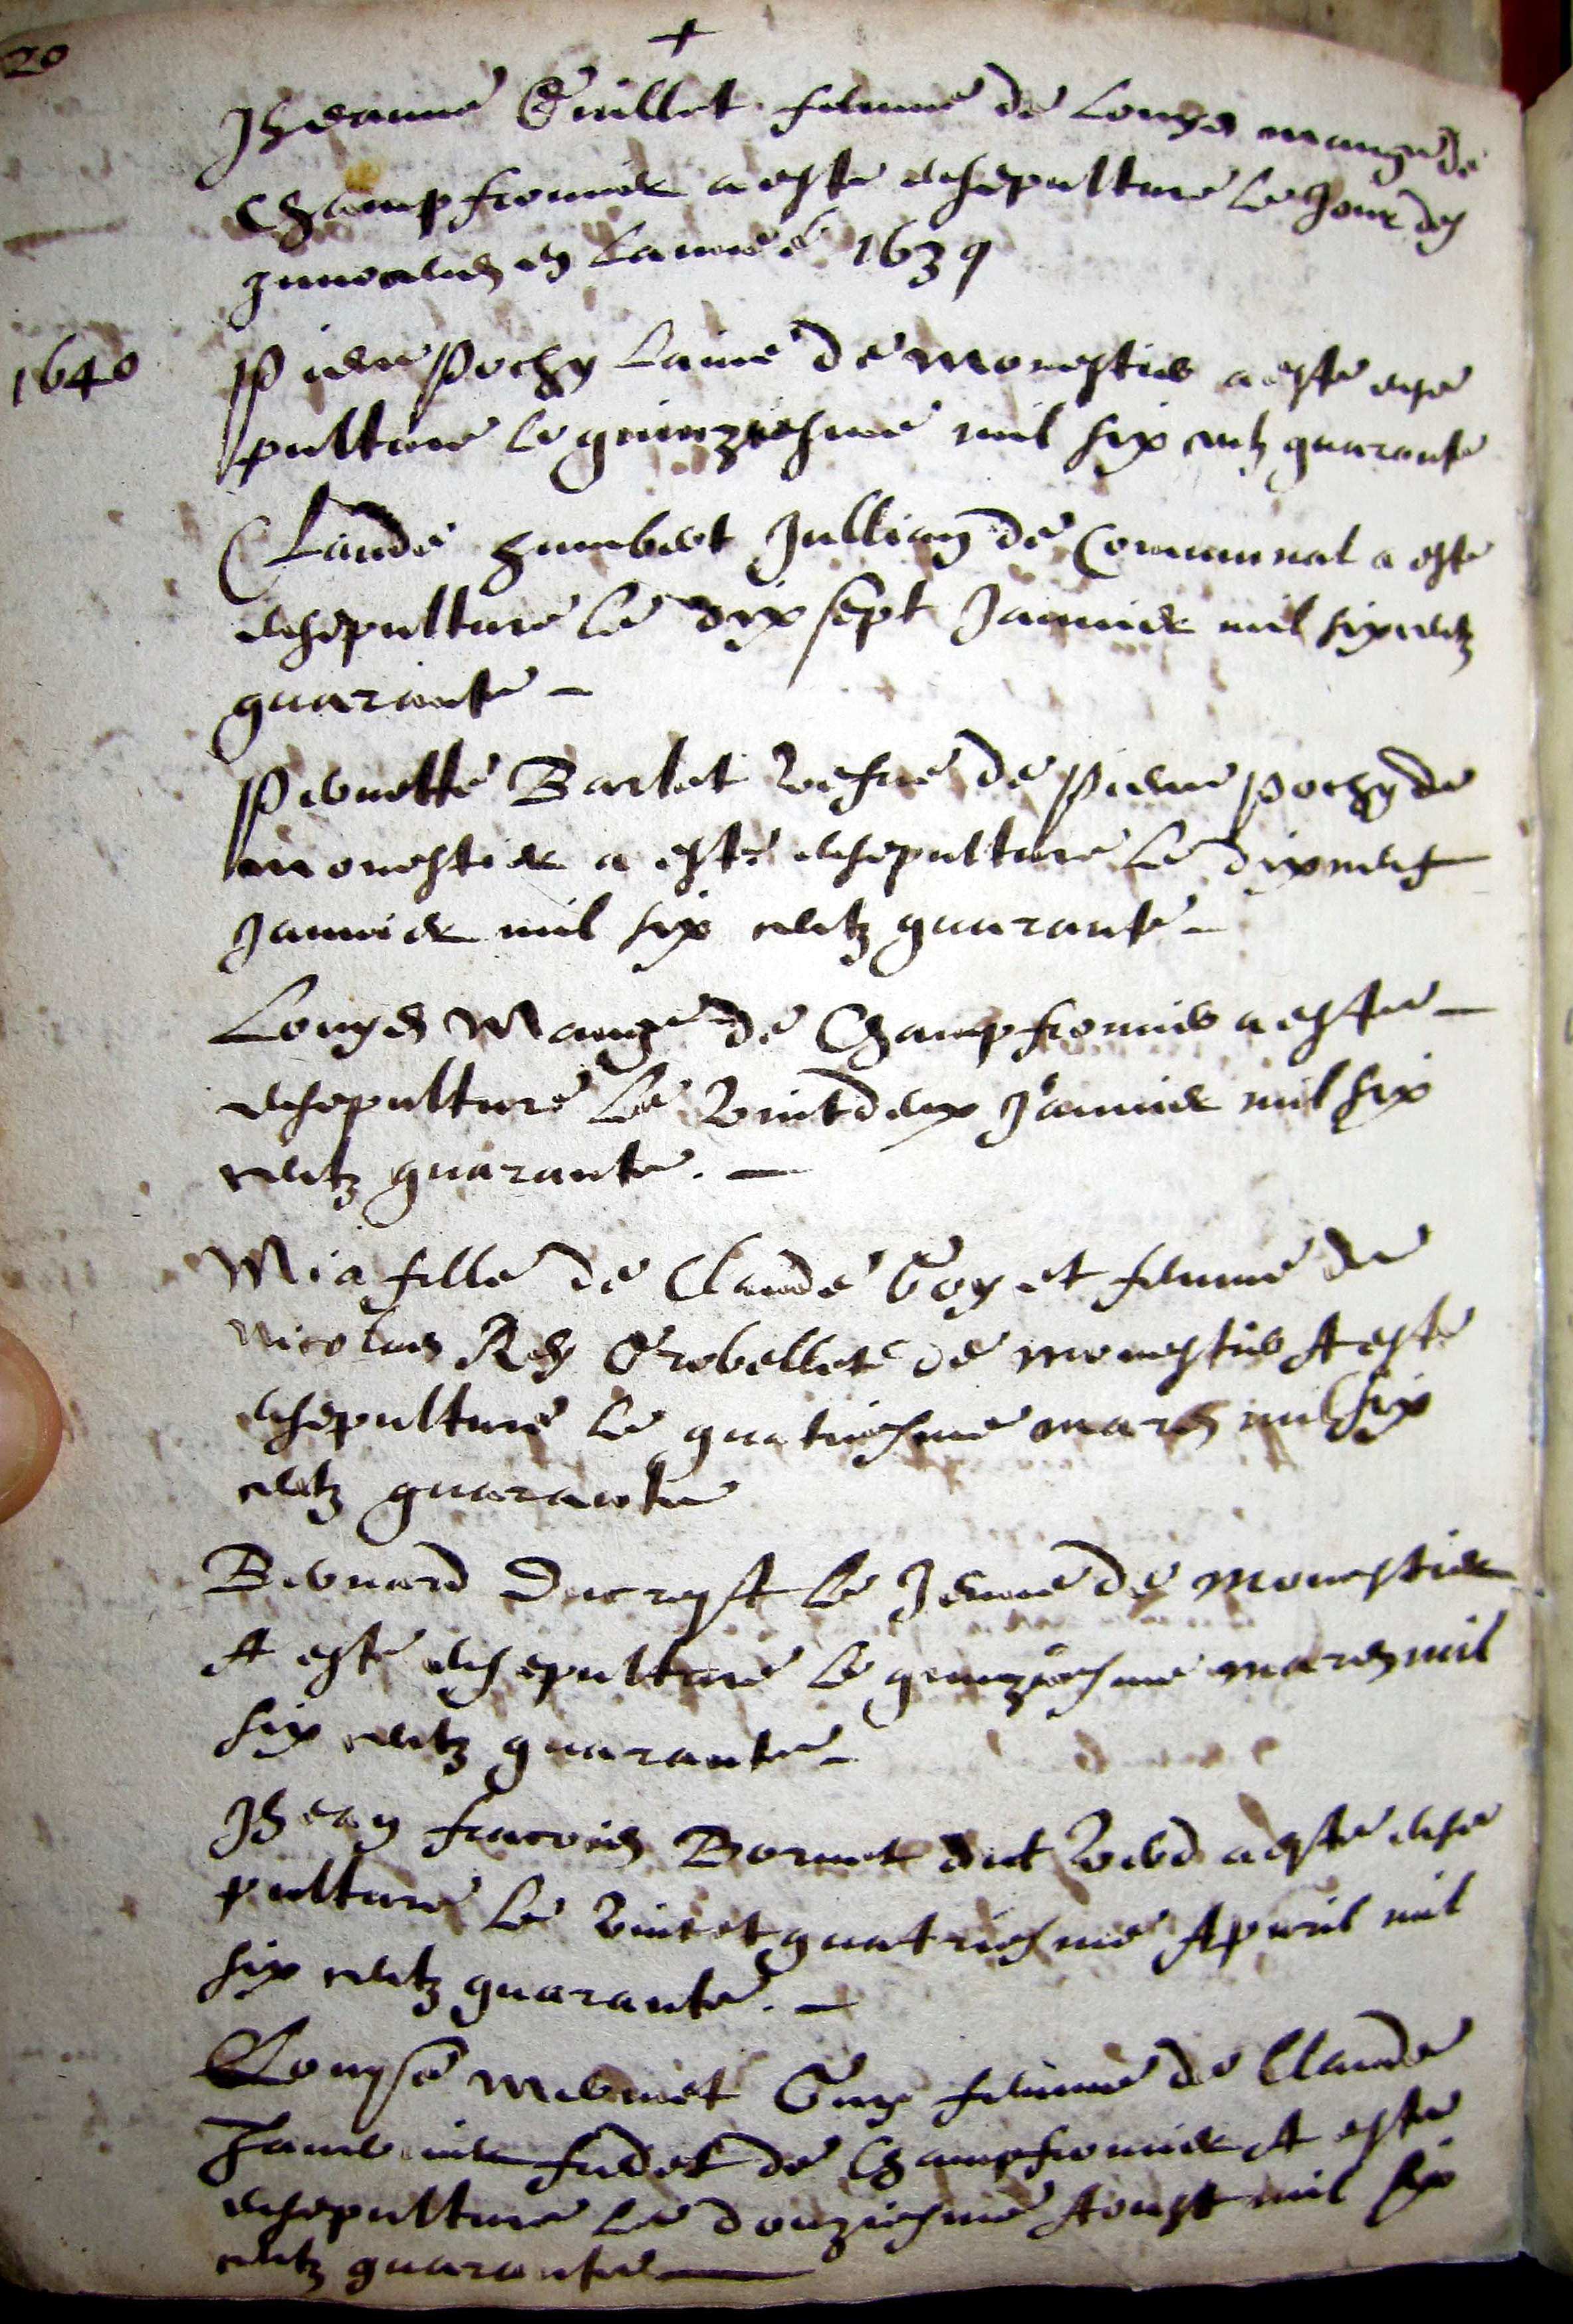 20
+
Jheanne Guillet femme de Louys mange de
Champfromier a este ensepulture le Jour des
Innocens en lannee 1639
1640
Pierre Pochy laine de monestier a este ense
pulture le quinziesme mil six cents quarante
Claude humbert Jullian de Communal a este
ensepulture le dix sept Januier mil six centz
quarante -
Pernette Barlet vefue de Pierre Pochy de
monestier a este ensepulture le dixneuf
Januier mil six centz quarante -
Louys Mange de Champfromier a este -
ensepulture le vint deux Januier mil six
centz quarante. -
Mia fille de Claude Goy et femme de
Nicolas Rey Grobellet de monestier A este
ensepulture le quatriesme mars mil six
centz quarante
Bernard Ducrest le Jeune de monestier
A este ensepulture le quinziesme mars mil
six centz quarante -
Jhean francois Bornet dict verd a este ense
pulture le vint et quatriesme Apuril mil
six centz quarante. -
Louyse mermet Guy femme de Claude
Tauernier fudet de Champfromier A este
ensepulture le douziesme Aoust mil six
centz quarante -